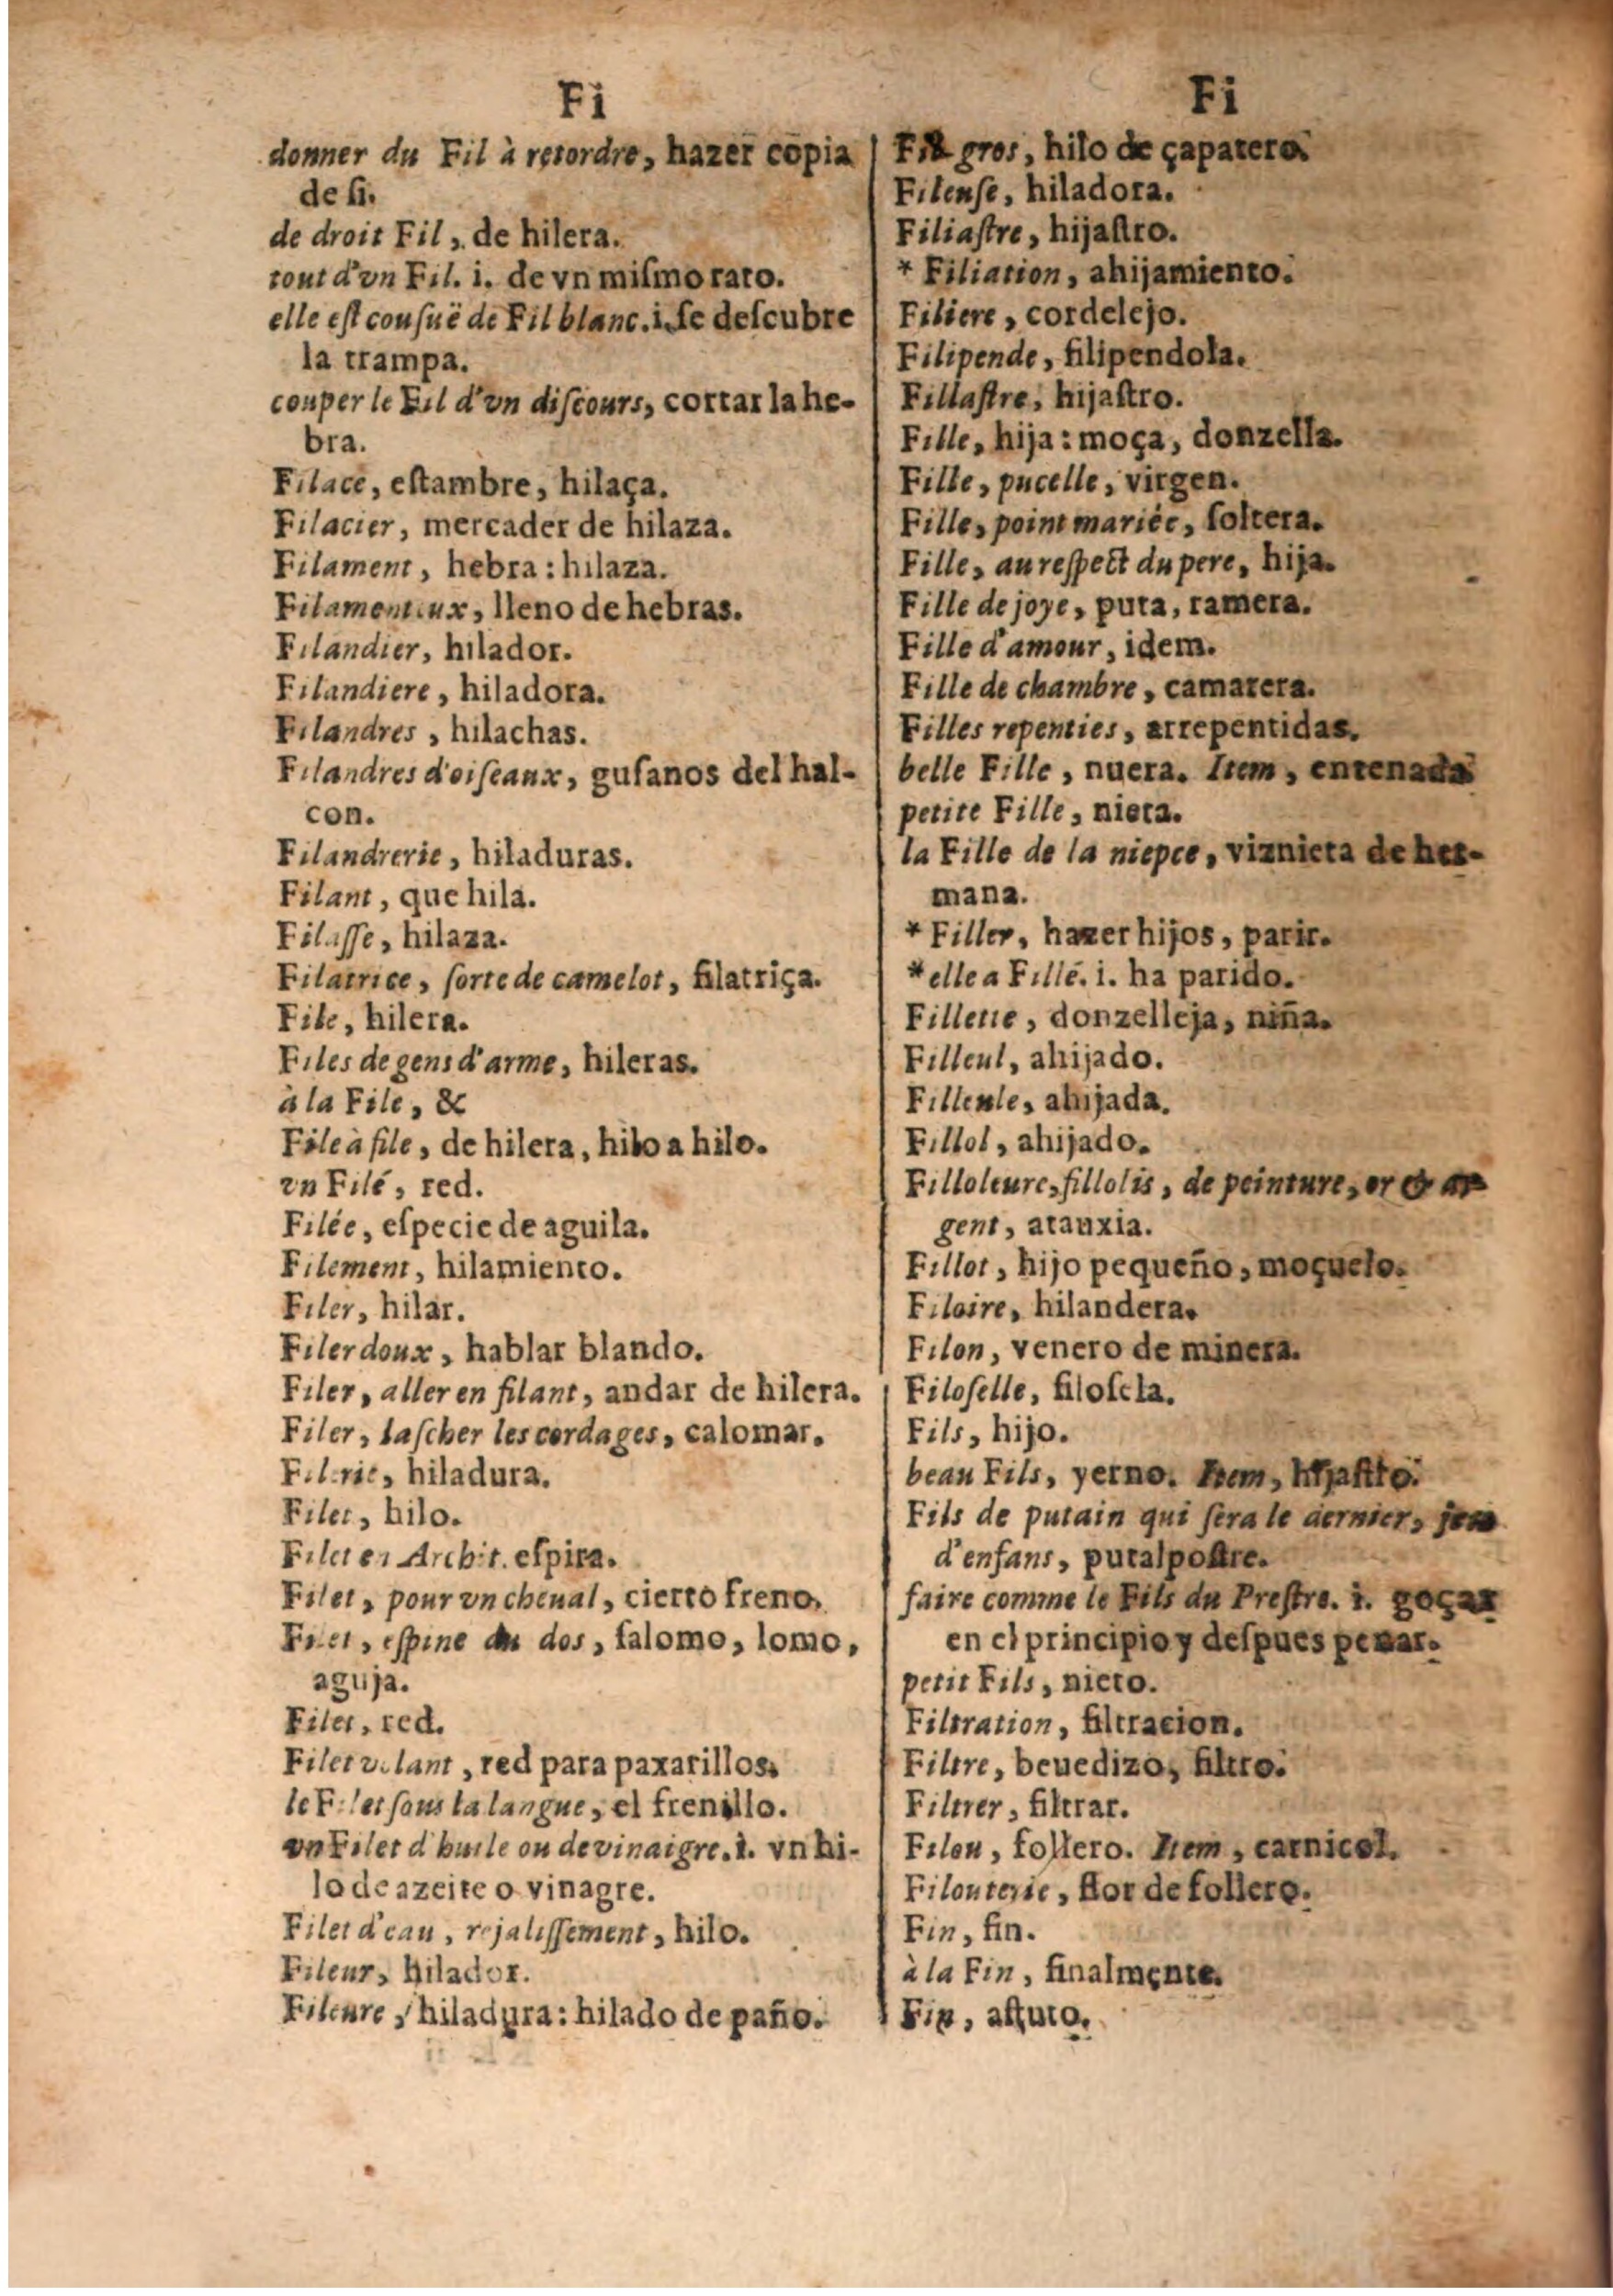 Fi
donner du Fil à retordre, hazer copia
de ſi.
de droit Fil, de hilera.
tout d'vn Fil. i. de vn miſmo rato.
elle eſt couſuë de Fil blanc. i. ſe deſcubre
la trampa.
couper le Fil d'vn diſcours, cortar la he-
bra.
Filace, eſtambre, hilaça.
Filacier, mercader de hilaza.
Filament, hebra : hilaza.
Filamenteux, lleno de hebras.
Filandier, hilador.
Filandiere, hiladora.
Filandres, hilachas.
Filandres d'oiſeaux, guſanos del hal-
con.
Filandrerie, hiladuras.
Filant, que hila.
Filaſſe, hilaza.
Filatrice, ſorte de camelot, filatriça.
File, hilera.
Files de gens d'arme, hileras.
à la File, &
File à file, de hilera, hilo a hilo.
vn Filé, red.
Filée, eſpecie de aguila.
Filement, hilamiento.
Filer, hilar.
Filer doux, hablar blando.
Filer, aller en filant, andar de hilera.
Filer, laſcher les cordages, calomar.
Filerie, hiladura.
Filet, hilo.
Filet en Archit. eſpira.
Filet, pour vn cheual, cierto freno.
Filet, eſpine du dos, ſalomo, lomo,
aguja.
Filet, red.
Filet volant, red para paxarillos.
le Filet ſous la langue, el frenillo.
vn Filet d'huile ou de vinaigre. i. vn hi-
lo de azeite o vinagre.
Filet d'eau, rejaliſſement, hilo.
Fileur, hilador.
Fileure, hiladura : hilado de paño.
Fi
Fil gros, hilo de çapatero.
Fileuſe, hiladora.
Filiaſtre, hijaſtro.
* Filiation, ahijamiento.
Filiere, cordelejo.
Filipende, filipendola.
Fillaſtre, hijaſtro.
Fille, hija : moça, donzella.
Fille, pucelle, virgen.
Fille, point mariée, ſoltera.
Fille, au reſpect du pere, hija.
Fille de joye, puta, ramera.
Fille d'amour, idem.
Fille de chambre, camarera.
Filles repenties, arrepentidas.
belle Fille, nuera. Item, entenada.
petite Fille, nieta.
la Fille de la niepce, viznieta de her-
mana.
* Filler, hazer hijos, parir.
* elle a Fillé. i. ha parido.
Fillette, donzelleja, niña.
Filleul, ahijado.
Filleule, ahijada.
Fillol, ahijado.
Filloleure, fillolis, de peinture, or & ar
gent, atauxia.
Fillot, hijo pequeño, moçuelo.
Filoire, hilandera.
Filon, venero de minera.
Filoſelle, filoſela.
Fils, hijo.
beau Fils, yerno. Item, hijaſtro.
Fils de putain qui ſera le dernier, jeu
d'enfans, putalpoſtre.
faire comme le Fils du Preſtre. i. goçar
en el principio y deſpues penar.
petit Fils, nieto.
Filtration, filtracion.
Filtre, beuedizo, filtro.
Filtrer, filtrar.
Filou, follero. Item, carnicol.
Filouterie, flor de follero.
Fin, fin.
à la Fin, finalmente.
Fin, aſtuto.